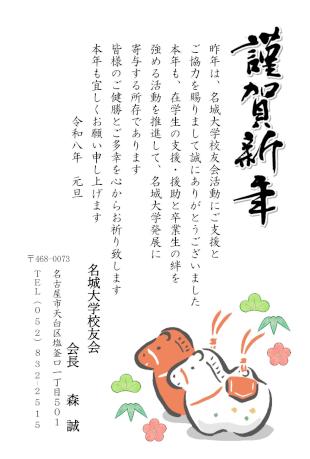 謹賀新年
昨年は、名城大学校友会活動にご支援と
ご協力を賜りまして誠にありがとうございました
本年も、在学生の支援・援助と卒業生の絆を
強める活動を推進して、名城大学発展に
寄与する所存であります
皆様のご健勝とご多幸を心からお祈り致します
本年も宜しくお願い申し上げます
令和八年　元旦
名城大学校友会
会長　森　誠
〒468-0073
名古屋市天白区塩釜口一丁目501
TEL(052)832-2515